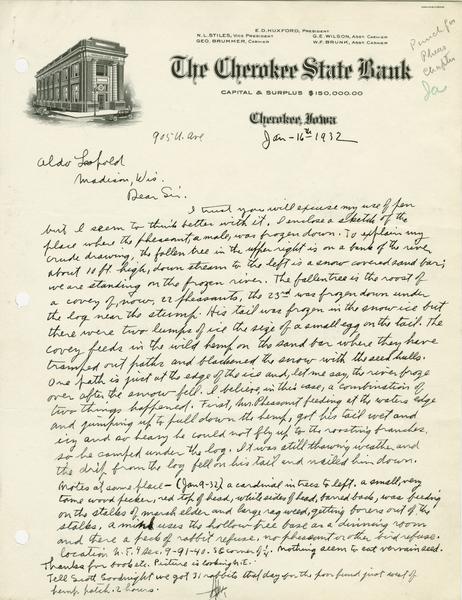 E.D. HUXFORD, PRESIDENT
N.L. STILES, VICE PRESIDENT G.E. WILSON, ASST. CASHIER
GEO. BRUMMER, CASHIER W.F. BRUNK, ASST. CASHIER
Punch for
Pheas
Chapter
Ia
The Cherokee State Bank
CAPITAL & SURPLUS $150,000.00
Cherokee, Iowa
905 U. Ave Jan-16th 1932
Aldo Leopold
Madison, Wis.
Dear Sir.
I trust you will excuse my use of pen
but I seem to think better with it. I enclose a sketch of the
place where the pheasant, a male, was frozen down. To explain my
crude drawing, the fallen tree in the upper right is on a bank of the river
about 10 ft. high, down stream to the left is a snow covered sand bar;
we are standing on the frozen river. The fallen tree is the roost of
a covey of, now, 22 pheasants, the 23rd was frozen down under
the log near the stump. His tail was frozen in the snow ice but
there were two lumps of ice the size of a small egg on the tail. The
covey feeds in the wild hemp on the sand bar where they have
tramped out paths and blackened the snow with the seed hulls.
One path is just at the edge of the ice and, let me say, the river froze
over after the snow fell. I believe, in this case, a combination of
two things happened. First, Mr. Pheasant feeding at the waters edge
and jumping up to pull down the hemp, got his tail wet and
icy and so heavy he could not fly up to the roosting branches,
so he camped under the log. It was still thawing weather and
the drip from the log fell on his tail and nailed him down.
Notes at same place - (Jan 9-32) a cardinal in trees to left. a small, very
tame wood pecker, red top of head, white sides of head, barred back, was feeding
on the stalks of marsh elder and large rag weed, getting borers out of the
stalks, a mink uses the hollow tree base as a dinning room
and there a peck of rabbit refuse, no pheasant or other bird refuse.
Location N.E. 4 Sec. 9-91-40. SE corner of ¼. Nothing seem to eat vervain seed.
Thanks for booklet. Picture is looking N.E.
Tell Scott Goodnight we got 31 rabbits that day for the poor fund just west of
hemp patch. 2 hours.